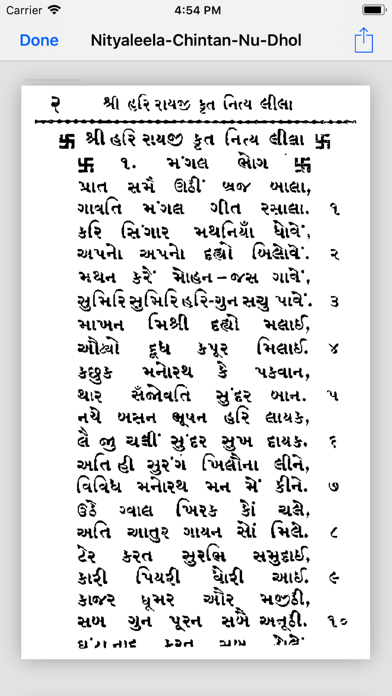 Carrier 4:54 PM
Done Nityaleela-Chintan-Nu-Dhol
૨ શ્રી હરિ રાયજી કૃત નિત્ય લીલા
卐 શ્રી હરિ રાયજી કૃત નિત્ય લીલા 卐
卐 ૧. મંગલ ભોગ 卐
પ્રાત સમૈ ઊઠીં વ્રજ બાલા,
ગાવતિ મંગલ ગીત રસાલા. ૧
કરિ સિંગાર મથનિયાઁ ધોવેં,
અપનો અપનો દહ્યો બિલોવેં. ૨
મથન કરૈં મોહન-જસ ગાવેં,
સુમિરિ સુમિરિ હરિ-ગુન સચુ પાવેં. ૩
માખન મિશ્રી દહ્યો મલાઈ,
ઔટ્યો દૂધ કપૂર મિલાઈ. ૪
કછુક મનોરથ કે પકવાન,
થાર સઁજોવતિ સુંદર બાન. ૫
નયે બસન ભૂષન હરિ લાયક,
લૈ જુ ચલીં સુંદર સુખ દાયક. ૬
અતિ હી સુરંગ ખિલૌના લીને,
વિવિધ મનોરથ મન મેં કીને. ૭
ઉઠે ગ્વાલ ખિરક કોં ચલે,
અતિ આતુર ગાયન સોં મિલે. ૮
ટેર કરત સુરભિ સમુદાઈ,
કારી પિયરી ધોરી આઈ. ૯
કાજર ધૂમર ઔર મજીઠી,
સબ ગુન પૂરન સબૈ અનૂઠી. ૧૦